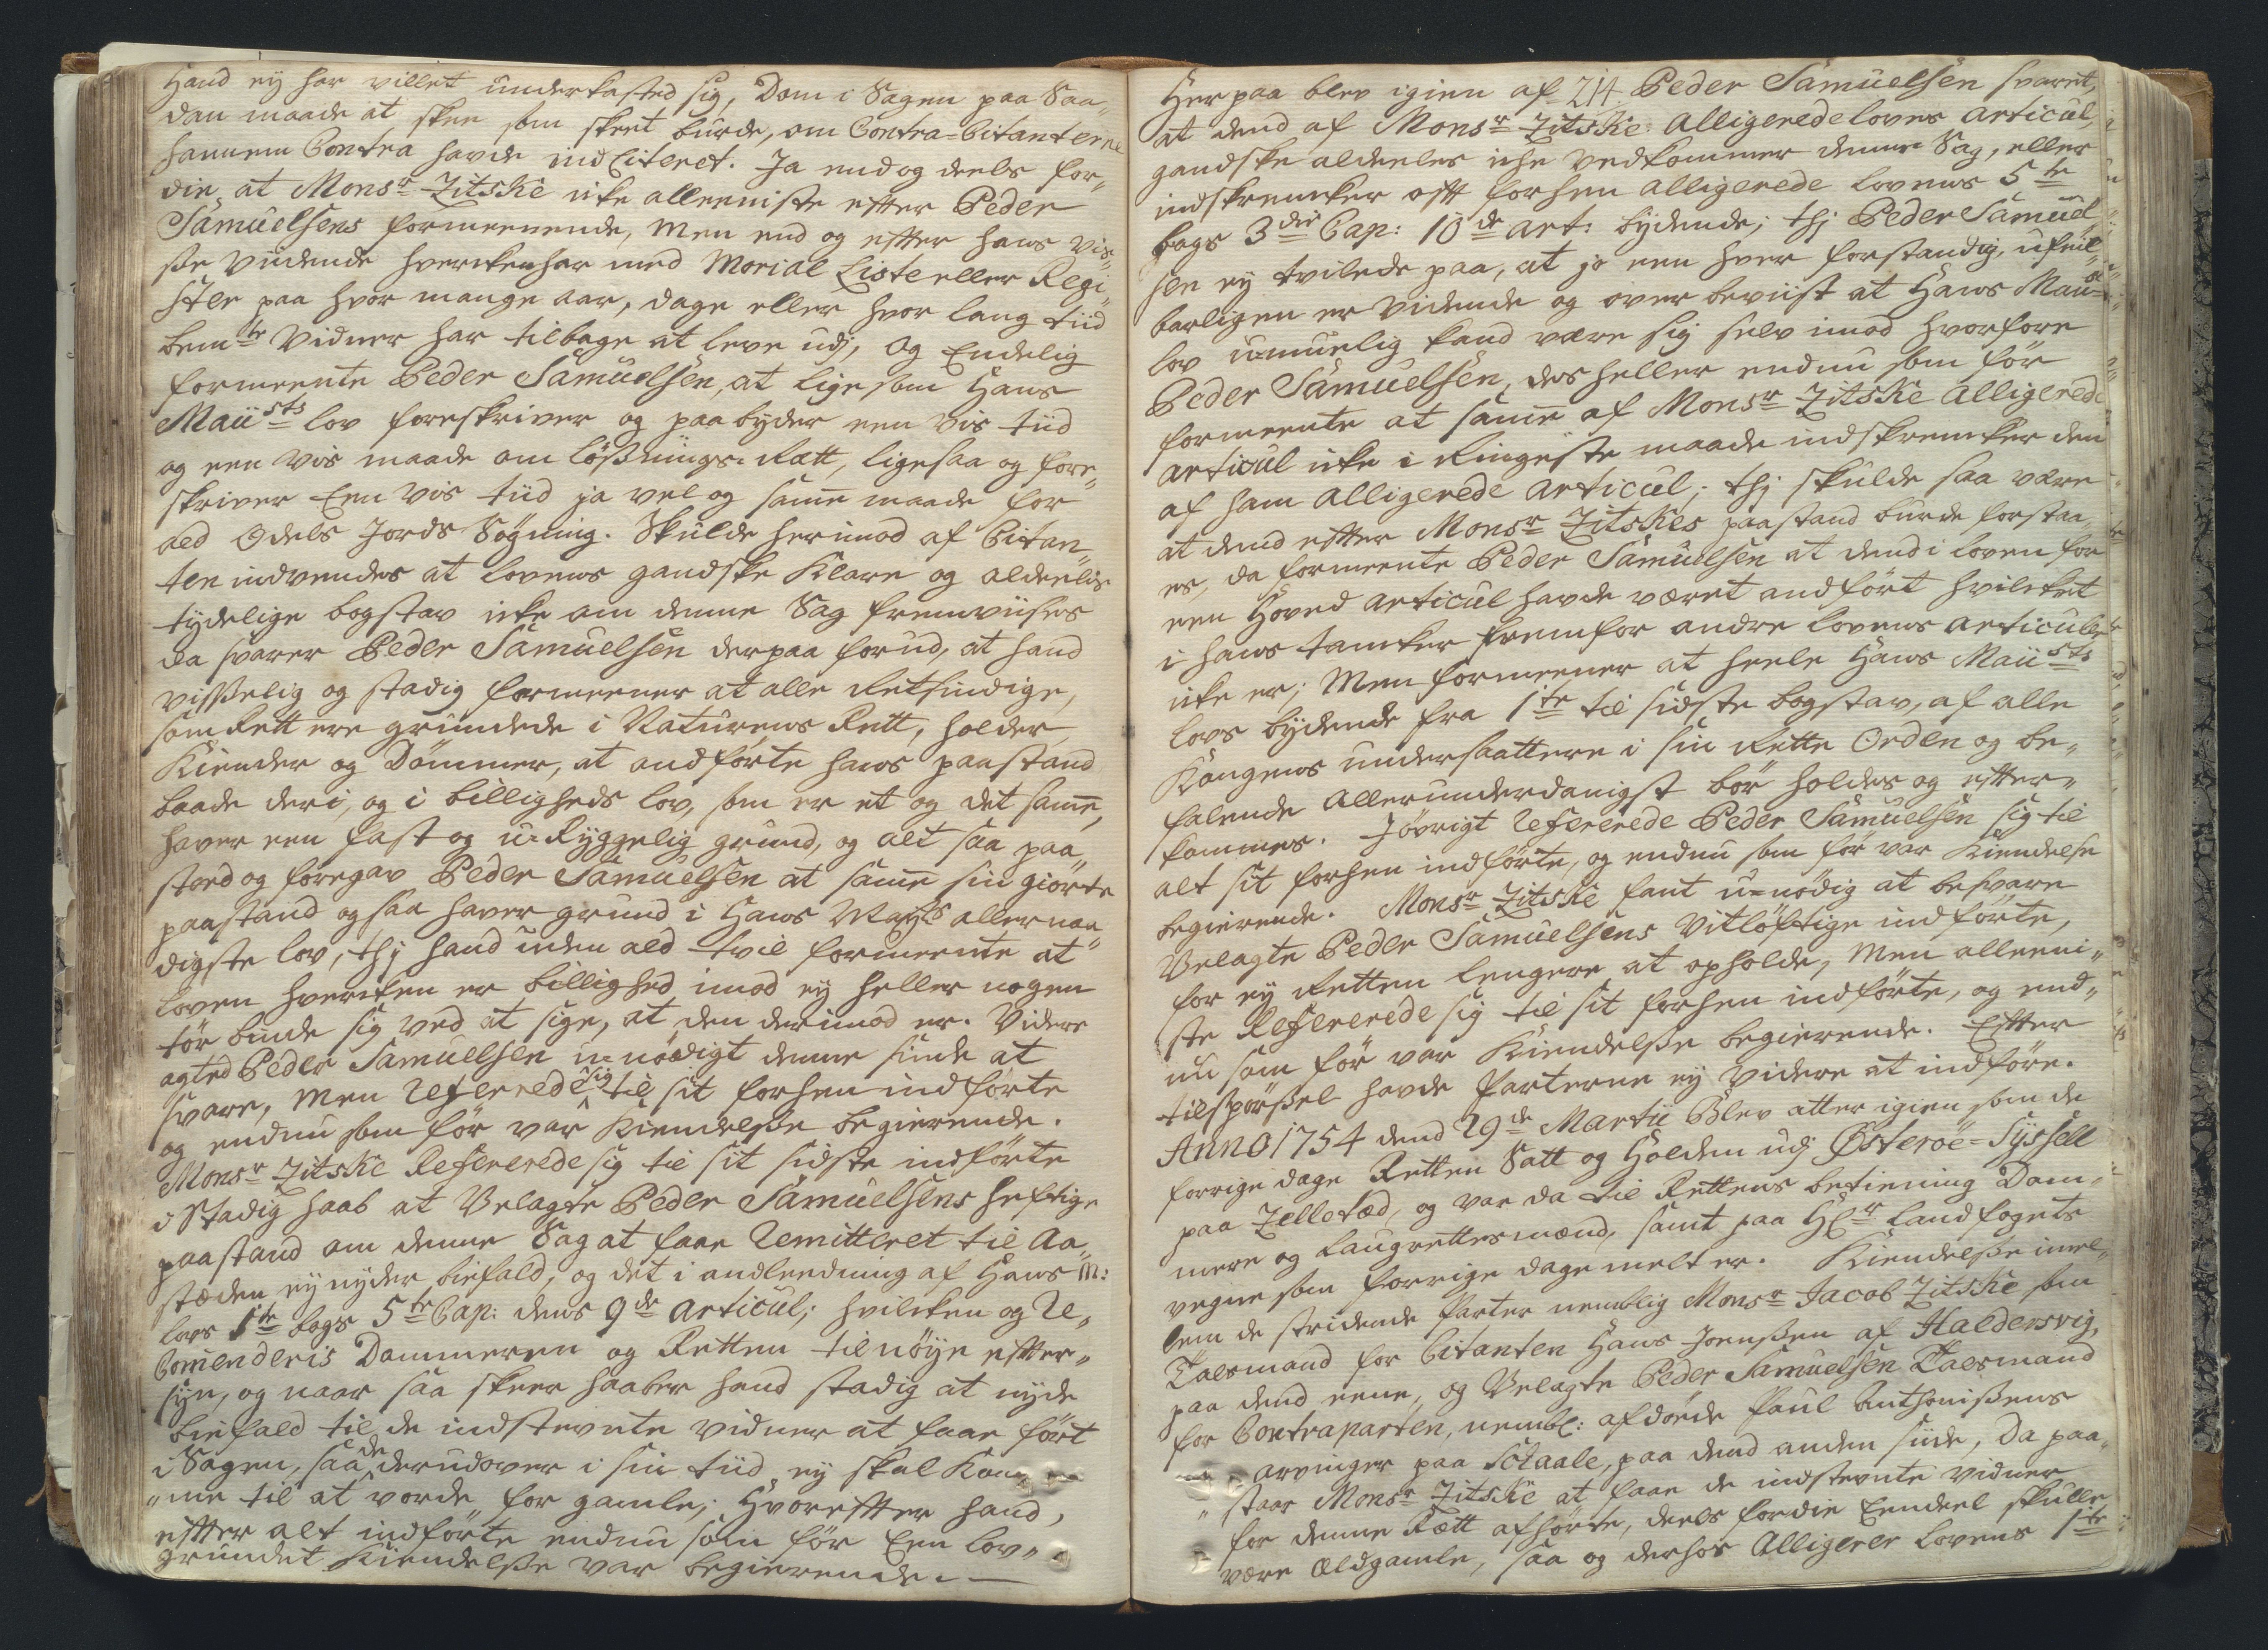 Hand ey har villet underkasted sig, Dom i Sagen paa Saa„
dan maade at skee som skeet burde, om Contra-Citanterne
hannem Contra havde ind Citeret. Ja end og deels for„
die at Monsr Zitske icke alleeniste efter Peder
Samuelsens formeenende, men end og efter hans vis„
se vidende hvercken har med Morial Liste eller Regi„
ster paa hvor mange aar, dage eller hvor lang tiid
bemte Vidner har tilbage at leve udj, og Endelig
formeente Peder Samuelsen, at lige som Hans
Maiists lov foreskriver og paabyder een vis tiid
og een vis maade om løsnings Rætt, ligesaa og fore„
skriver Een vis tiid ja vel og samme maade for
ald Odels Jords Søgning. Skulde herimod af Citan„
ten indvendes at lovens gandske Klare og aldeelis
tydelige bogstav icke om denne Sag fremviises
da svarer Peder Samuelsen derpaa forud, at hand
visselig og stadig formeener at alle Retsindige,
som Rett ere grundede i Naturens Rett, holder
Kiender og Dømmer, at andførte hans paastand
baade deri, og i billigheds lov, som er et og det samme,
haver een fast og u-Ryggelig grund, og alt saa paa„
stod og foregav Peder Samuelsen at samme sin giørte
paastand ogsaa haver grund i Hans Mayts allernaa„
digste lov, thj hand uden ald tvil formeente at
loven hvercken er billighed imod ey heller nogen
tør binde sig ved at sige, at den derimod er. Videre
agted Peder Samuelsen u-nødigt denne sinde at
svare, men Refererede sig til sit forhen indførte
og endnu som før var Kiendelse begierende.
Monsr Zitske Refererede sig til sit sidste indførte
i Stadig haab at Velagte Peder Samuelsens heftige
paastand om denne Sag at faae Remitteret til Aa„
stæden ey nyder biefald, og det i andleedning af Hans M:
lovs 1te bogs 5te Cap: dens 9de Articul; hvilcken og Re„
Comenderis Dommeren og Retten til nøye efter„
syn, og naar saa skeer haaber hand stadig at nyde
biefald til de indstevnte vidner at faae ført
i Sagen, saa de derudover i sin tiid ey skal Kom„
„me til at vorde for gamle; Hvorefter hand,
efter alt indførte endnu som før Een lov„
grundet Kiendelse var begierende. —
Herpaa blev igien af 214 Peder Samuelsen svaret,
at dend af Monsr Zitske Alligerede lovens Articul,
gandske aldeeles iche vedkommer denne Sag, eller
indskrencker ofte forhen alligerede lovens 5te
bogs 3die Cap: 10de art: bydende; thj Peder Samuel„
sen ey tvilede paa, at jo een hver forstandig, ufeil„
barligen er vidende og over beviist at Hans Maiists
lov u-muelig kand være sig selv imod hvorfore
Peder Samuelsen, des heller endnu som før
formeente at samme af Monsr Zitske Alligerede
Articul icke i Ringeste maade indskrencker den
af ham Alligerede Articul; thj skulde saa være
at dend efter Monsr Zitskes paastand burde forstaa„
es, da formeente Peder Samuelsen at dend i loven for
een Hoved Articul havde været andført hvilcket
i hans tancker fremfor andre lovens Articuler
icke er; Men formeener at heele Hans Maiists
lovs bydende fra 1te til sidste bogstav, af alle
Kongens undersaattere i sin Rette Orden og be„
falende Allerunderdanigst bør holdes og efter„
kommes. J øvrigt Refererede Peder Samuelsen sig til
alt sit forhen indførte, og endnu som før var Kiendelse
begierende. Monsr Zitske fant u-nødig at besvare
Velagte Peder Samuelsens Vitløftige indførte,
for ey Retten lengere at opholde, Men alleeni„
ste Refererede sig til sit forhen indførte, og end„
nu som før var Kiendelse begierende. Efter
tilspørsel havde Parterne ey videre at indføre.
Anno 1754 dend 29de Martii Blev atter igien som de
forrige dage Retten Satt og Holden udj Østerøe-Syssell
paa Zelletræd, og var da til Rettens betiening Dom„
mere og Laugrettesmænd, samt paa Hr landfogets
vegne som forrige dage melt er. Kiendelse imel„
lem de stridende Parter nemblig Monsr Jacob Zitske som
Talsmand for Citanten Hans Joensen af Haldersvig,
paa dend eene, og Velagte Peder Samuelsen Talsmand
for Contraparten, nembl: afdøde Paul Anthonisens
arvinger paa Selaale, paa dend anden siide, Da paa„
„staar Monsr Zitske at faae de indstevnte vidner
for denne Rætt afhørte, deels fordie Eendeel skulle
være Eldgamle, saa og derhos Alligerer lovens 1te